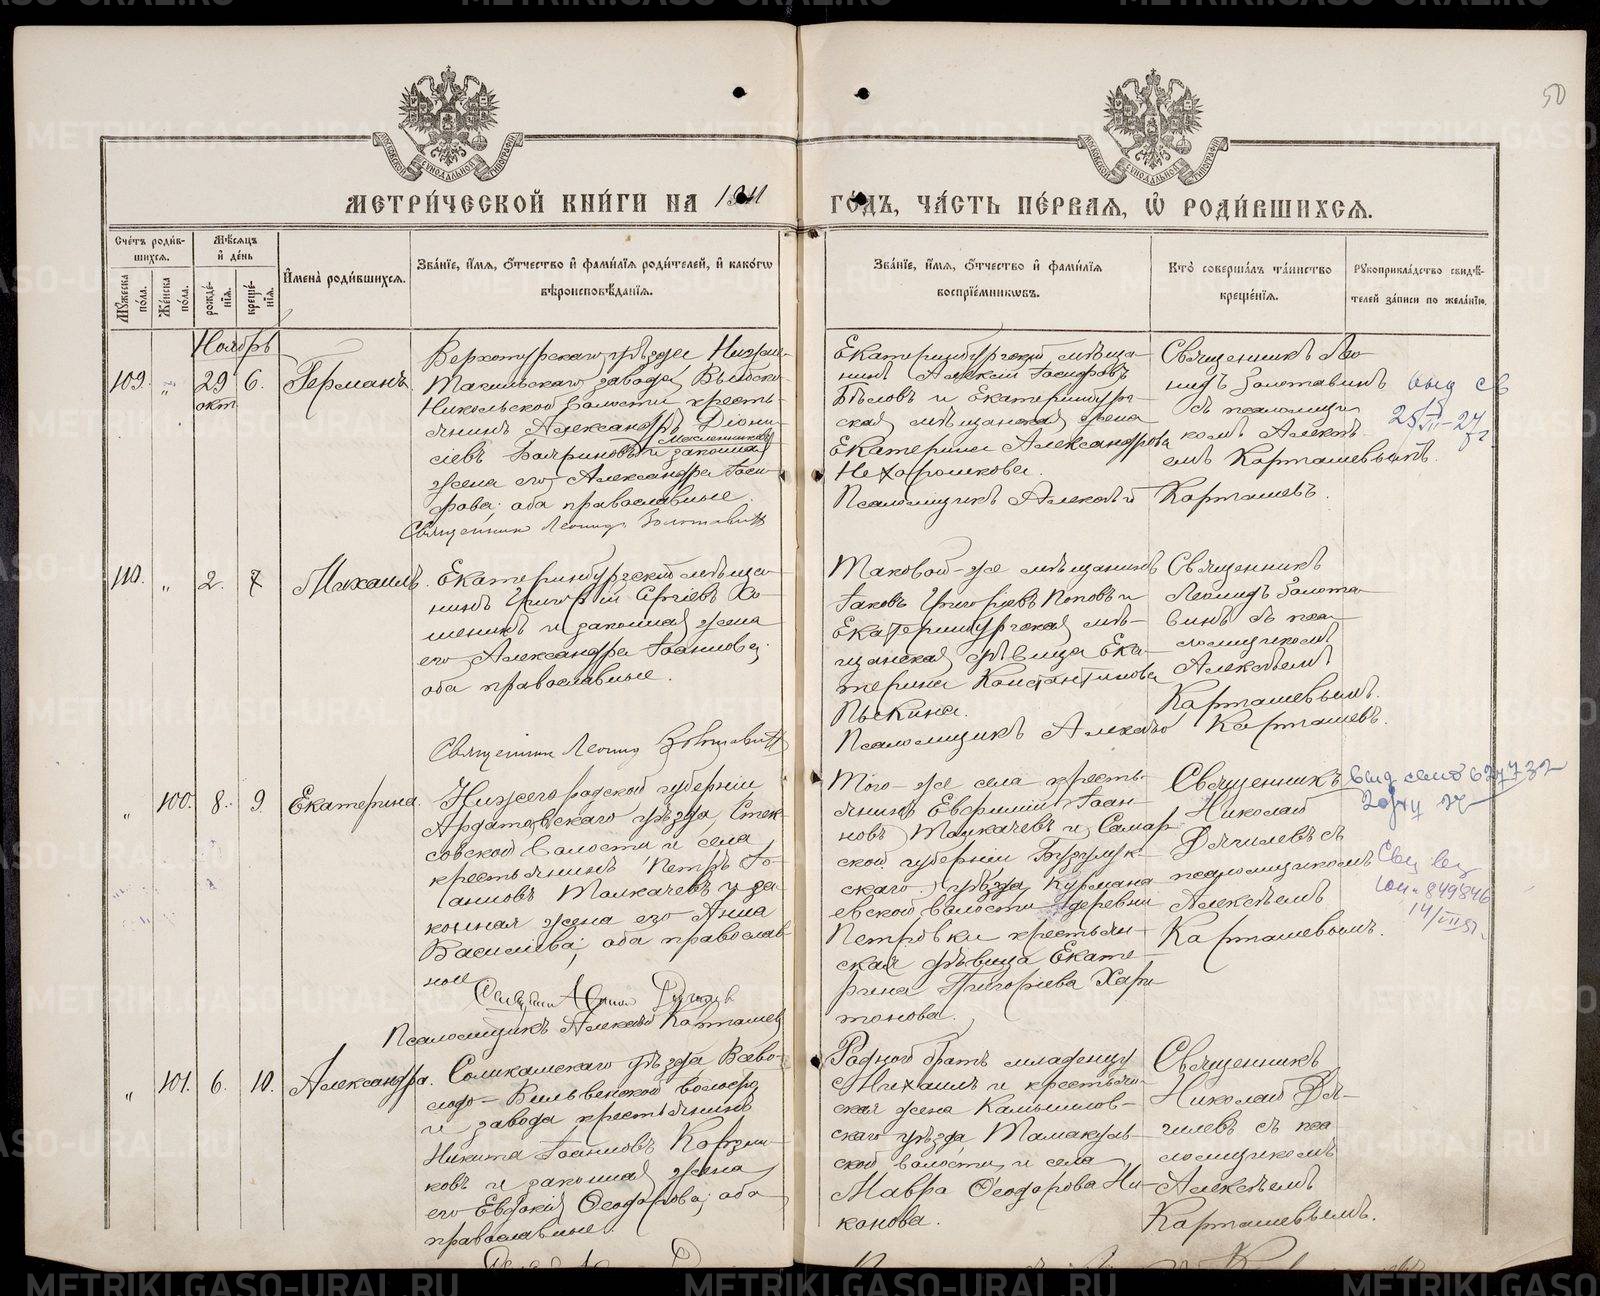 50
МЕТРИ́ЧЕСКОЙ КНИ́ГИ НА 1911 ГО́ДЪ, ЧА́СТЬ ПЕ́РВАЯ, Ѡ РОДИ́ВШИХСЯ.
Сче́тъ роди́вшихся.
Му́жеска по́ла.
Же́нска по́ла.
Мѣ́сяцъ и҆ де́нь
рожде́нїѧ.
креще́нїѧ.
И҆мена̀ роди́вшихся.
Зва́нїе, и҆́мя, о҆́тчество и҆ фами́лїя роди́телей, и҆ како́гѡ вѣроисповѣ́данїя.
Зва́нїе, и҆́мя, о҆́тчество и҆ фами́лїя воспрїе́мникѡвъ.
Кто̀ соверша́лъ та́инство креще́нїя.
Рꙋкоприкла́дство свидѣ́телей за́писи по жела́нїю.
Ноябрь
109. „ 29 окт 6. Германъ.
Верхотурскаго уѣзда Нижне-
Тагильскаго завода, Выйско-
Никольской волости кресть-
янинъ Александръ Діони-
сіевъ Масленниковъ и законная
жена его Александра Іоси-
фова; оба православные.
Священник Леонид Золотавин
Екатеринбургскій мѣща-
нинъ Алексій Іосифовъ
Бѣловъ и Екатеринбург-
ская мѣщанская жена
Екатерина Александрова
Нехорошкова.
Псаломщикъ Алексѣй Карташевъ.
Священникъ Лео-
нидъ Золотавинъ
съ псаломщи-
комъ Алексѣ-
емъ Карташевымъ.
выд св
110. „ 2. 7 Михаилъ.
Екатеринбургскій мѣща-
нинъ Григорій Сергіевъ Хо-
меникъ и законная жена
его Александра Іоаннова;
оба православные.
Священник Леонид Золотавин
Таковой-же мѣщанинъ
Іаковъ Григоріевъ Поповъ и
Екатеринбургская мѣ-
щанская дѣвица Ека-
терина Константинова
Пыкина.
Псаломщикъ Алексѣй Карташевъ.
Священникъ
Леонидъ Золота-
винъ съ пса-
ломщикомъ
Алексѣемъ
Карташевымъ.
„ 100. 8. 9. Екатерина.
Нижегородской губерніи
Ардатовскаго уѣзда, Стек-
совской волости и села
крестьянинъ Петръ Іо-
анновъ Толкачевъ и за-
конная жена его Анна
Васильева; оба православ-
ные
Псаломщикъ Алексѣй Карташевъ
Того-же села кресть-
янинъ Евфимій Іоан-
новъ Толкачевъ и Самар-
ской губерніи Бузулук-
скаго уѣзда, Курмана-
евской волости деревни
Петровки крестьян-
ская дѣвица Екате-
рина Григоріева Хари-
тонова.
Священникъ
Николай
Дягилевъ съ
псаломщикомъ
Алексѣемъ
Карташевымъ.
849846
„ 101. 6. 10. Александра.
Соликамскаго уѣзда, Всево-
лодо-Вильвенской волости
и завода крестьянинъ
Никита Іоанновъ Корзни-
ковъ и законная жена
его Евдокія Ѳеодорова; оба
православные.
Родной братъ младенцу
Михаилъ и крестьян-
ская жена Камышлов-
скаго уѣзда Тамакуль-
ской волости и села
Мавра Ѳеодорова Ни-
конова.
Священникъ
Николай Дя-
гилевъ съ пса-
ломщикомъ
Алексѣемъ
Карташевымъ.
METRIKI.GASO-URAL.RU